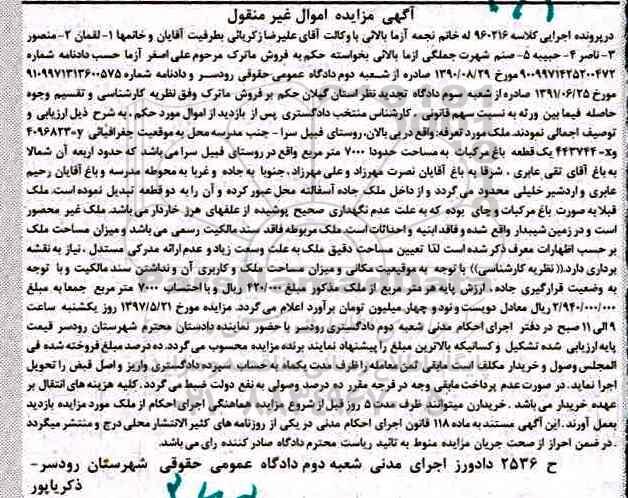 آگهی مزایده اموال غیر منقول
درپرونده اجرایی کلاسه ۹۶۰۲۱۶ له خانم نجمه آزما بالائی با وکالت آقای علیرضا زکریائی بطرفیت آقایان و خانمها ۱- لقمان ۲- منصور
۳- ناصر ۴- حبیبه ۵- صنم شهرت جملگی ازما بالائی بخواسته حکم به فروش ماترک مرحوم علی اصغر آزما حسب دادنامه شماره
۹۰۰۹۹۷۱۴۲۵۲۰۰۴۷۲ مورخ ۱۳۹۰/۰۸/۲۹ صادره از شعبه دوم دادگاه عمومی حقوقی رودسر و دادنامه شماره ۹۱۰۹۹۷۱۳۱۳۶۰۰۵۷۵
مورخ ۱۳۹۱/۰۶/۲۵ صادره از شعبه سوم دادگاه تجدید نظر استان گیلان حکم بر فروش ماترک وفق نظریه کارشناسی و تقسیم وجوه
حاصله فیما بین ورثه به نسبت سهم قانونی، کارشناس منتخب دادگستری پس از بازدید از اموال مورد حکم، به شرح ذیل ارزیابی و
توصیف اجمالی نمودند. ملک مورد تعرفه: واقع در بی بالان، روستای فبیل سرا - جنب مدرسه محل به موقعیت جغرافیائی ۴۰۹۶۸۲۳=y
و۴۴۳۷۴۴=x یک قطعه باغ مرکبات به مساحت حدودا ۷۰۰۰ متر مربع واقع در روستای فبیل سرا می باشد که حدود اربعه آن شمالا
به باغ آقای تقی عابری، شرقا به باغ آقایان نصرت مهرزاد و علی مهرزاد، جنوبا به جاده و غربا به محوطه مدرسه و باغ آقایان رحیم
عابری و اردشیر خلیلی محدود می گردد و از داخل ملک جاده آسفالته محل عبور کرده و آن را به دو قطعه تبدیل نموده است. ملک
قبلا به صورت باغ مرکبات و چای بوده که به علت عدم نگهداری صحیح پوشیده از علفهای هرز خاردار می باشد. ملک غیر محصور
است و در زمین شیبدار واقع شده و فاقد ابنیه و احداثات است. ملک مربوطه فاقد سند مالکیت رسمی می باشد و میزان مساحت ملک
بر حسب اظهارات معرف ذکر شده است لذا تعیین مساحت دقیق ملک به علت وسعت زیاد و عدم ارائه مدرکی مستدل، نیاز به نقشه
برداری دارد.(( نظریه کارشناسی)) با توجه به موقعیت مکانی و میزان مساحت ملک و کاربری آن و نداشتن سند مالکیت و با توجه
به وضعیت قرارگیری جاده، ارزش پایه هر متر مربع از ملک مذکور مبلغ ۴۲۰/۰۰۰ ریال و با احتساب ۷۰۰۰ متر مربع جمعا به مبلغ
۲/۹۴۰/۰۰۰/۰۰۰ ریال معادل دویست و نود و چهار میلیون تومان برآورد اعلام می گردد. مزایده مورخ ۱۳۹۷/۵/۲۱ روز یکشنبه ساعت
۹ الی ۱۱ صبح در دفتر اجرای احکام مدنی شعبه دوم دادگستری رودسر با حضور نماینده دادستان محترم شهرستان رودسر قیمت
پایه ارزیابی شده تشکیل و کسانیکه بالاترین مبلغ را پیشنهاد نمایند برنده مزایده محسوب می گردد. ده درصد مبلغ فروخته شده فی
المجلس وصول و خریدار مکلف است مابقی ثمن معامله را ظرف مدت یکماه به حساب سپرده دادگستری واریز و اصل قبض را تحویل
اجرا نماید. در صورت عدم پرداخت مابقی وجه در فرجه مقرر ده درصد وصولی به نفع دولت ضبط می گردد. کلیه هزینه های انتقال بر
عهده خریدار می باشد. خریداران میتوانند ظرف مدت ۵ روز قبل از شروع مزایده هماهنگی اجرای احکام از ملک مورد مزایده بازدید
بعمل آورند. این آگهی مستند به ماده ۱۱۸ قانون اجرای احکام مدنی در یکی از روزنامه های کثیر الانتشار محلی درج و منتشر میگردد
. در ضمن احراز از صحت جریان مزایده منوط به تائید ریاست محترم دادگاه صادر کننده رای می باشد.
ح ۲۵۳۶ دادورز اجرای مدنی شعبه دوم دادگاه عمومی حقوقی شهرستان رودسر-
ذکریاپور